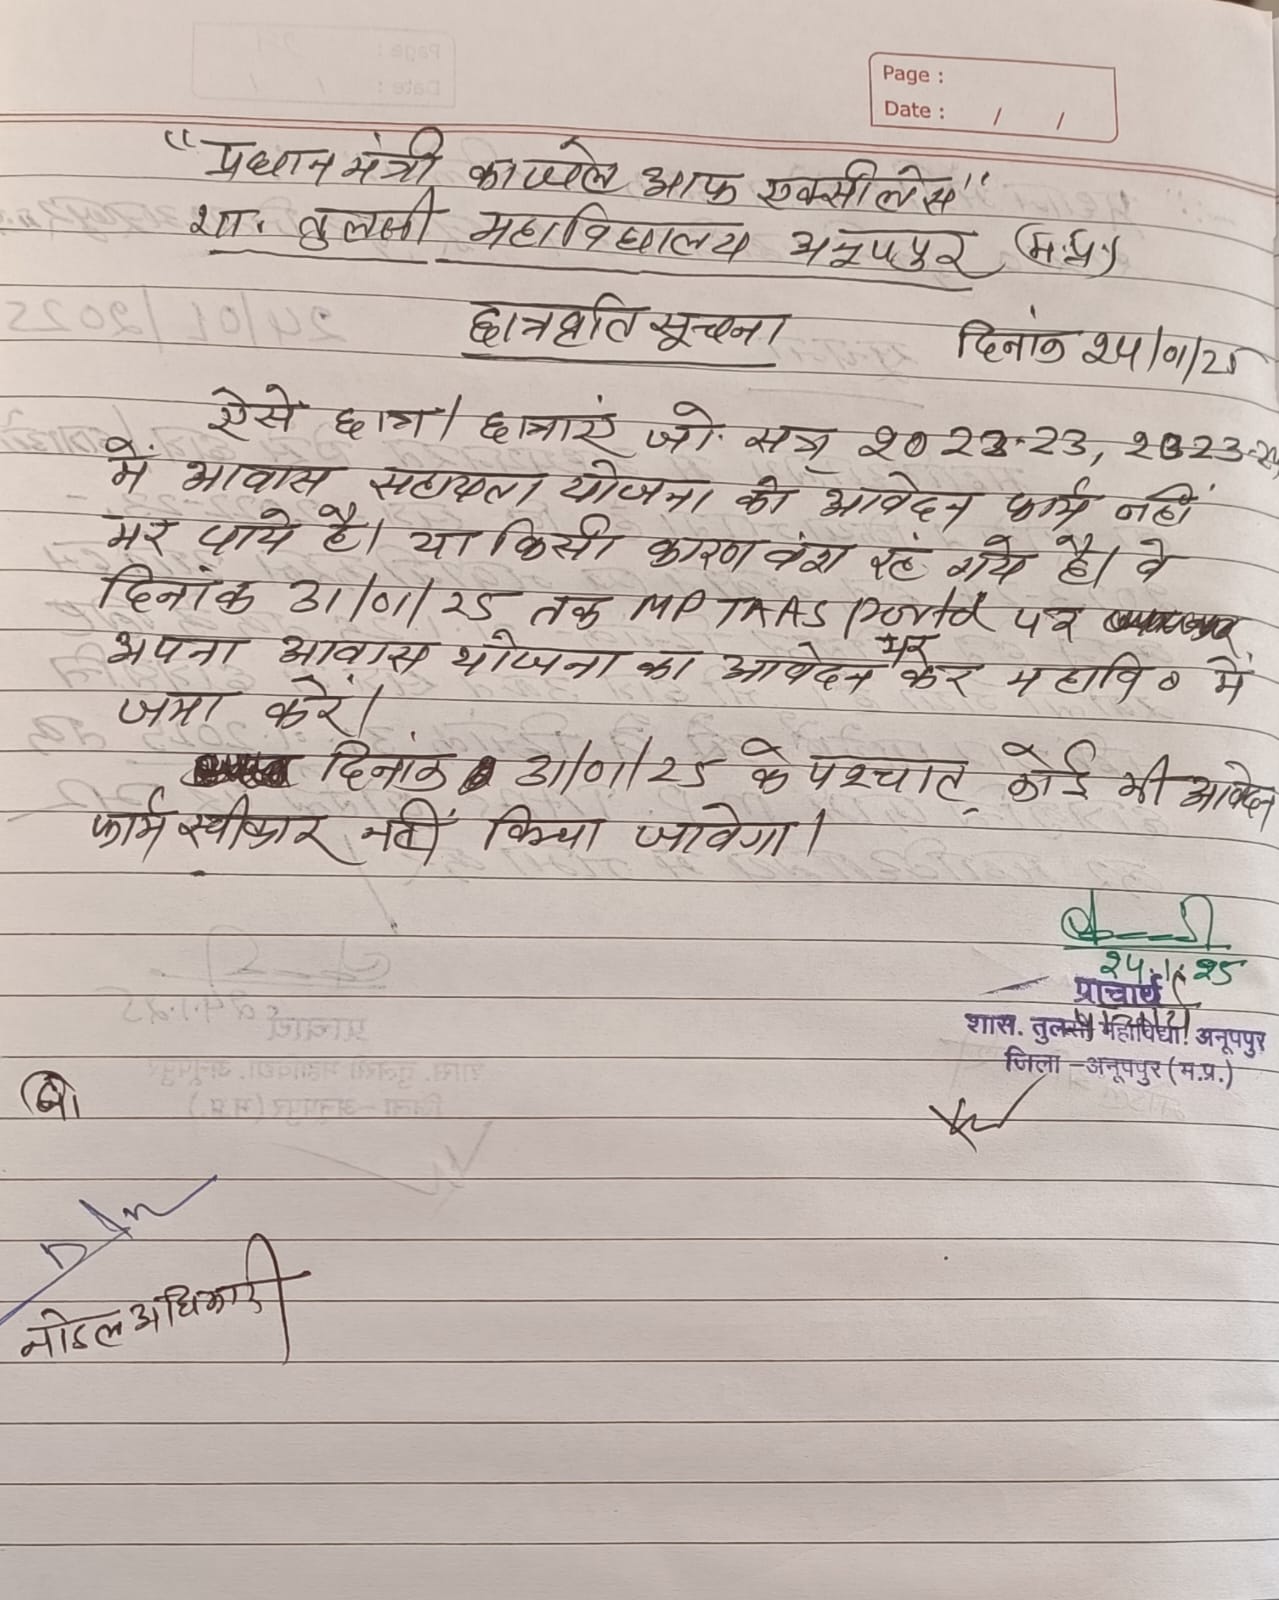 Page :
Date : / /
"प्रधानमंत्री कालेज आफ एक्सीलेंस"
शा. तुलसी महाविद्यालय अनूपपुर (म.प्र.)
छात्रवृति सूचना दिनांक 24/01/25
ऐसे छात्र/छात्राएं जो सत्र 2022-23, 2023-24
में आवास सहायता योजना की आवेदन फार्म नहीं
भर पाये है। या किसी कारण वंश रह गये है। वे
दिनांक 31/01/25 तक MP TAAS Portal पर
अपना आवास योजना का आवेदन भर कर महावि० में
जमा करें।
दिनांक 31/01/25 के पश्चात् कोई भी आवेदन
फार्म स्वीकार नहीं किया जावेगा।
24.1.25
प्राचार्य
शास. तुलसी महाविद्या. अनूपपुर
जिला-अनूपपुर (म.प्र.)
नोडल अधिकारी